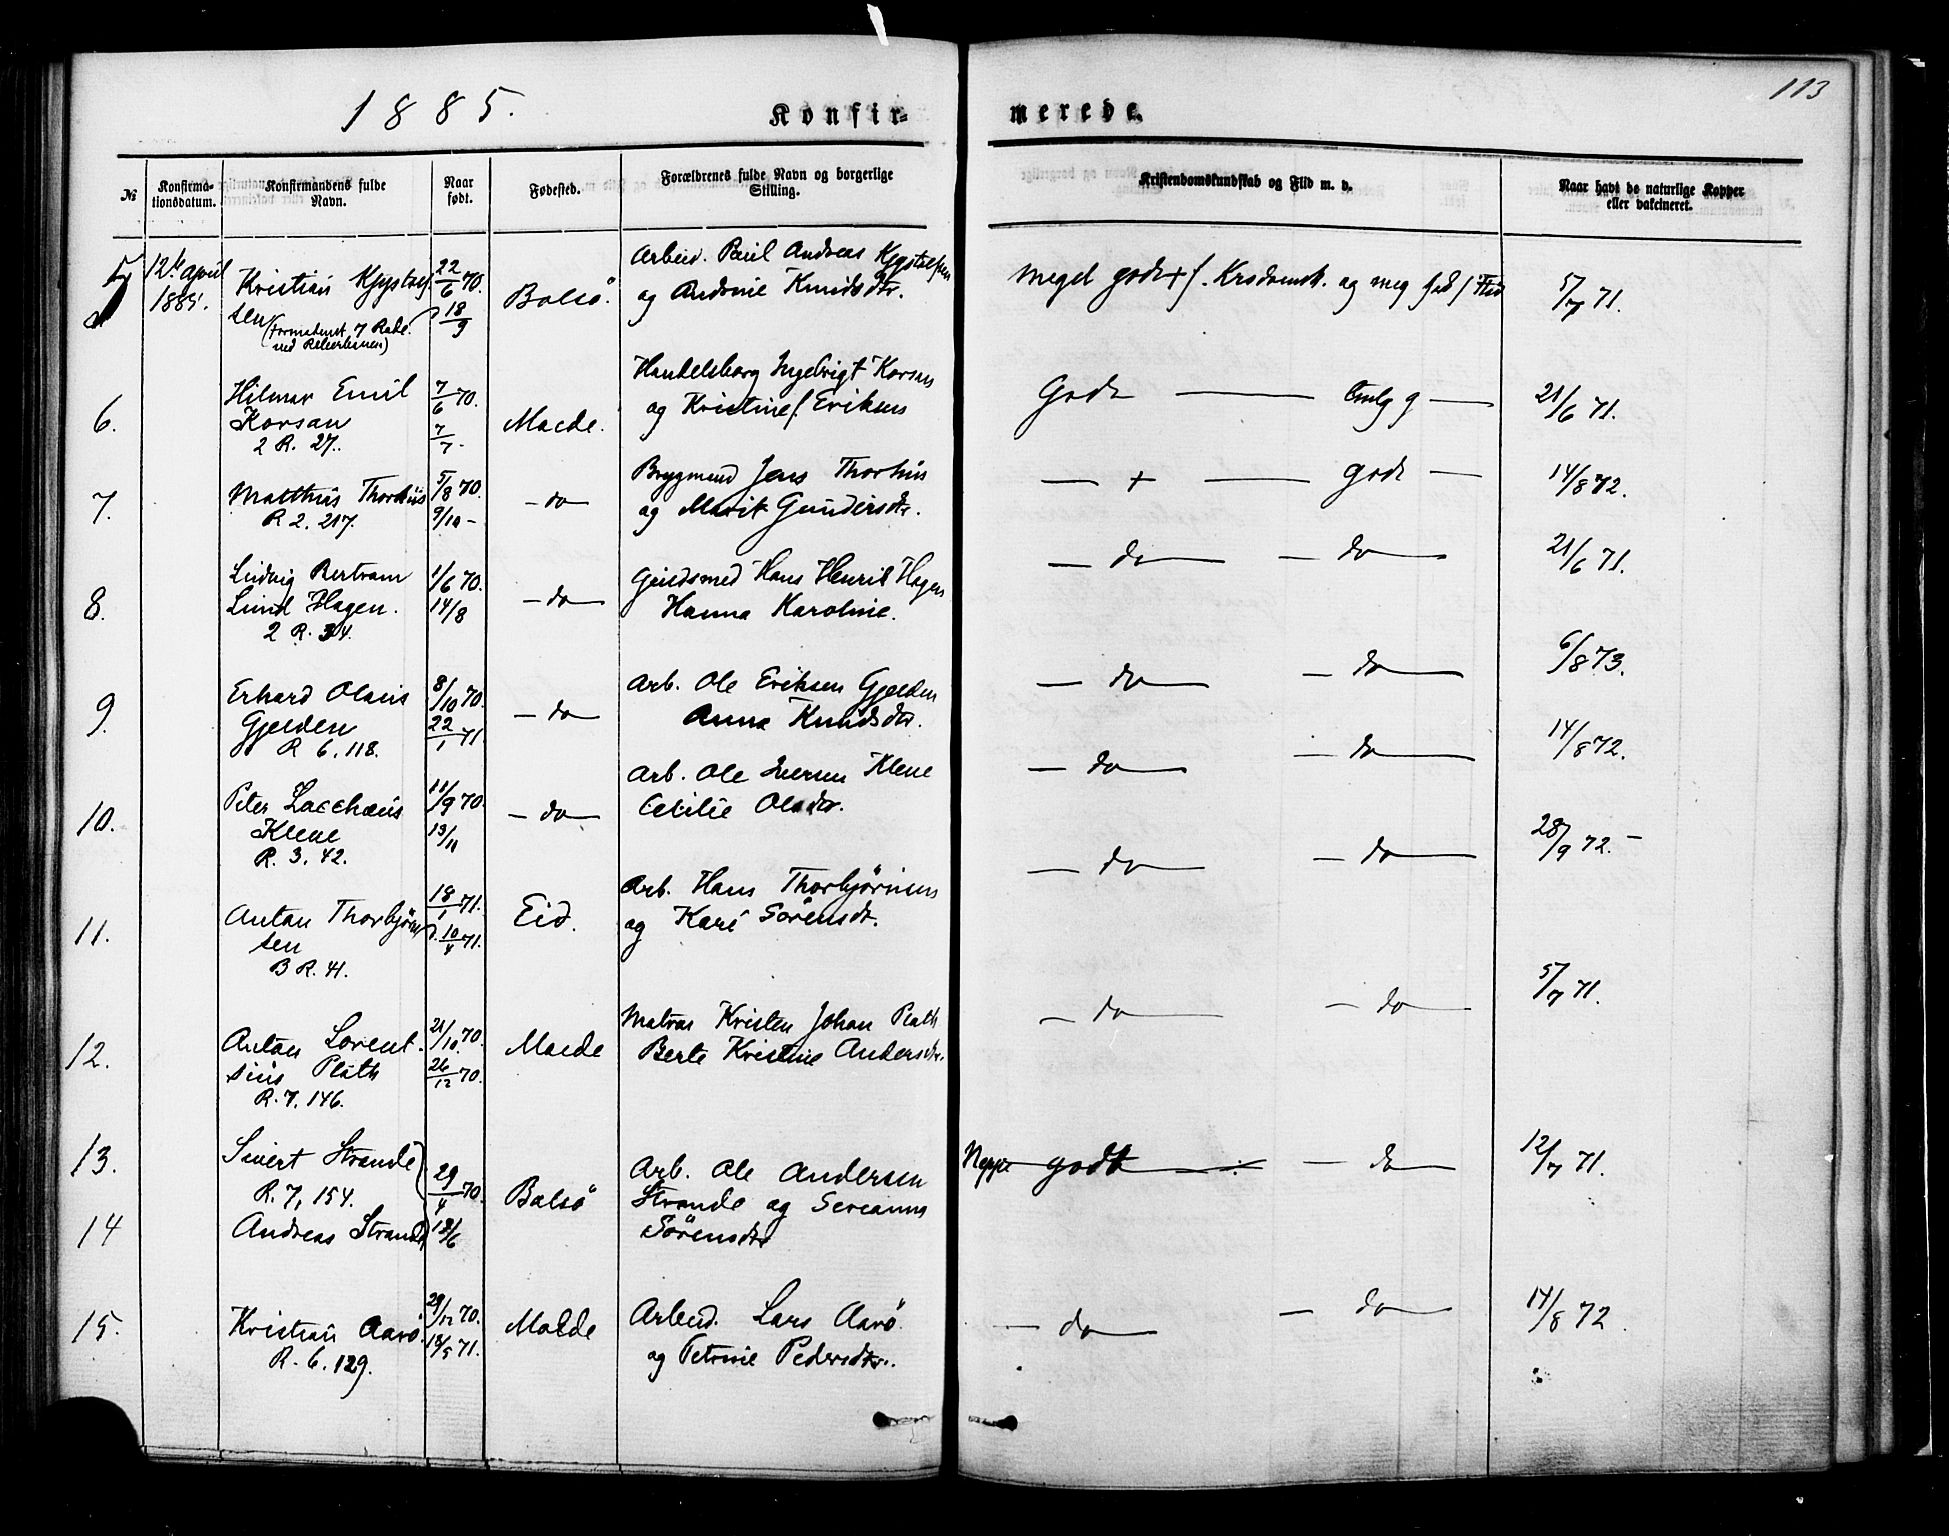 1885.
Konfir-
merede.
113
№
Konfirma-
tionsdatum.
Konfirmandens fulde
Navn.
Naar
født.
Fødested.
Forældrenes fulde Navn og borgerlige
Stilling.
Kristendomskundskab og Flid m. v.
Naar havt de naturlige Kopper
eller vakcineret.
5
12te april
1885.
Kristian
sen
22/6 70.
18/9
Bolsø.
Arbeid. Paul Andreas
og Andrine Knudsdtr.
Meget godt + f. Krsdomsk. og meg
5/7 71.
6.
Hilmar Emil
Korsan
2 R. 27.
7/6 70.
7/7.
Molde.
Handelsborg Ingebrigt Korsan
og Kristine f. Eriksen
Godt
21/6 71.
7.
Matthias Thorhus
R 2. 217.
5/8 70.
9/10 -
- do -
Brygmand Jens Thorhus
og Marit Gundersdtr.
- + - godt -
14/8 72.
8.
Ludvig Bertram
Lund Hagen.
2 R. 34.
1/6 70.
14/8
- do -
Guldsmed Hans Henrik Hagen
Hanna Karoline.
- do - - do -
21/6 71.
9.
Erhard Olaus
Gjelden
R 6. 118.
8/10 70.
22/1 71.
- do -
Arb. Ole Eriksen Gjelden
Anna Knudsdtr.
- do - - do -
6/8 73.
10.
Peter Zacchæus
Kleve
R. 3. 42.
11/9 70.
13/11
- do -
Arb. Ole Iversen Kleve
Cecilie Olsdtr.
- do - - do -
14/8 72.
11.
Anton Thorbjørn
sen
B R. 41.
18/1 71.
10/4 71.
Eid.
Arb. Hans Thorbjørnsen
og Kari Sörensdtr.
- do - - do -
28/9 72. -
12.
Anton Lorent-
sius Plath
R. 7. 146.
21/10 70.
26/12 70.
Molde
Matros Kristen Johan Plath
Berte Kristine Andersdtr.
- do - - do -
5/7 71.
13.
Sivert Strande
R. 7, 154.
14
Andreas Strande
29/4 70.
18/6
Bolsö
Arb. Ole Andersen
Strande og Sereanna
Sörensdtr
Neppe godt - do -
12/7 71.
15.
Kristian Aarö.
R. 6. 129.
29/12 70.
18/5 71.
Molde
Arbeid. Lars Aarö.
og Petrine Pedersdtr.
- do - - do -
14/8 72.